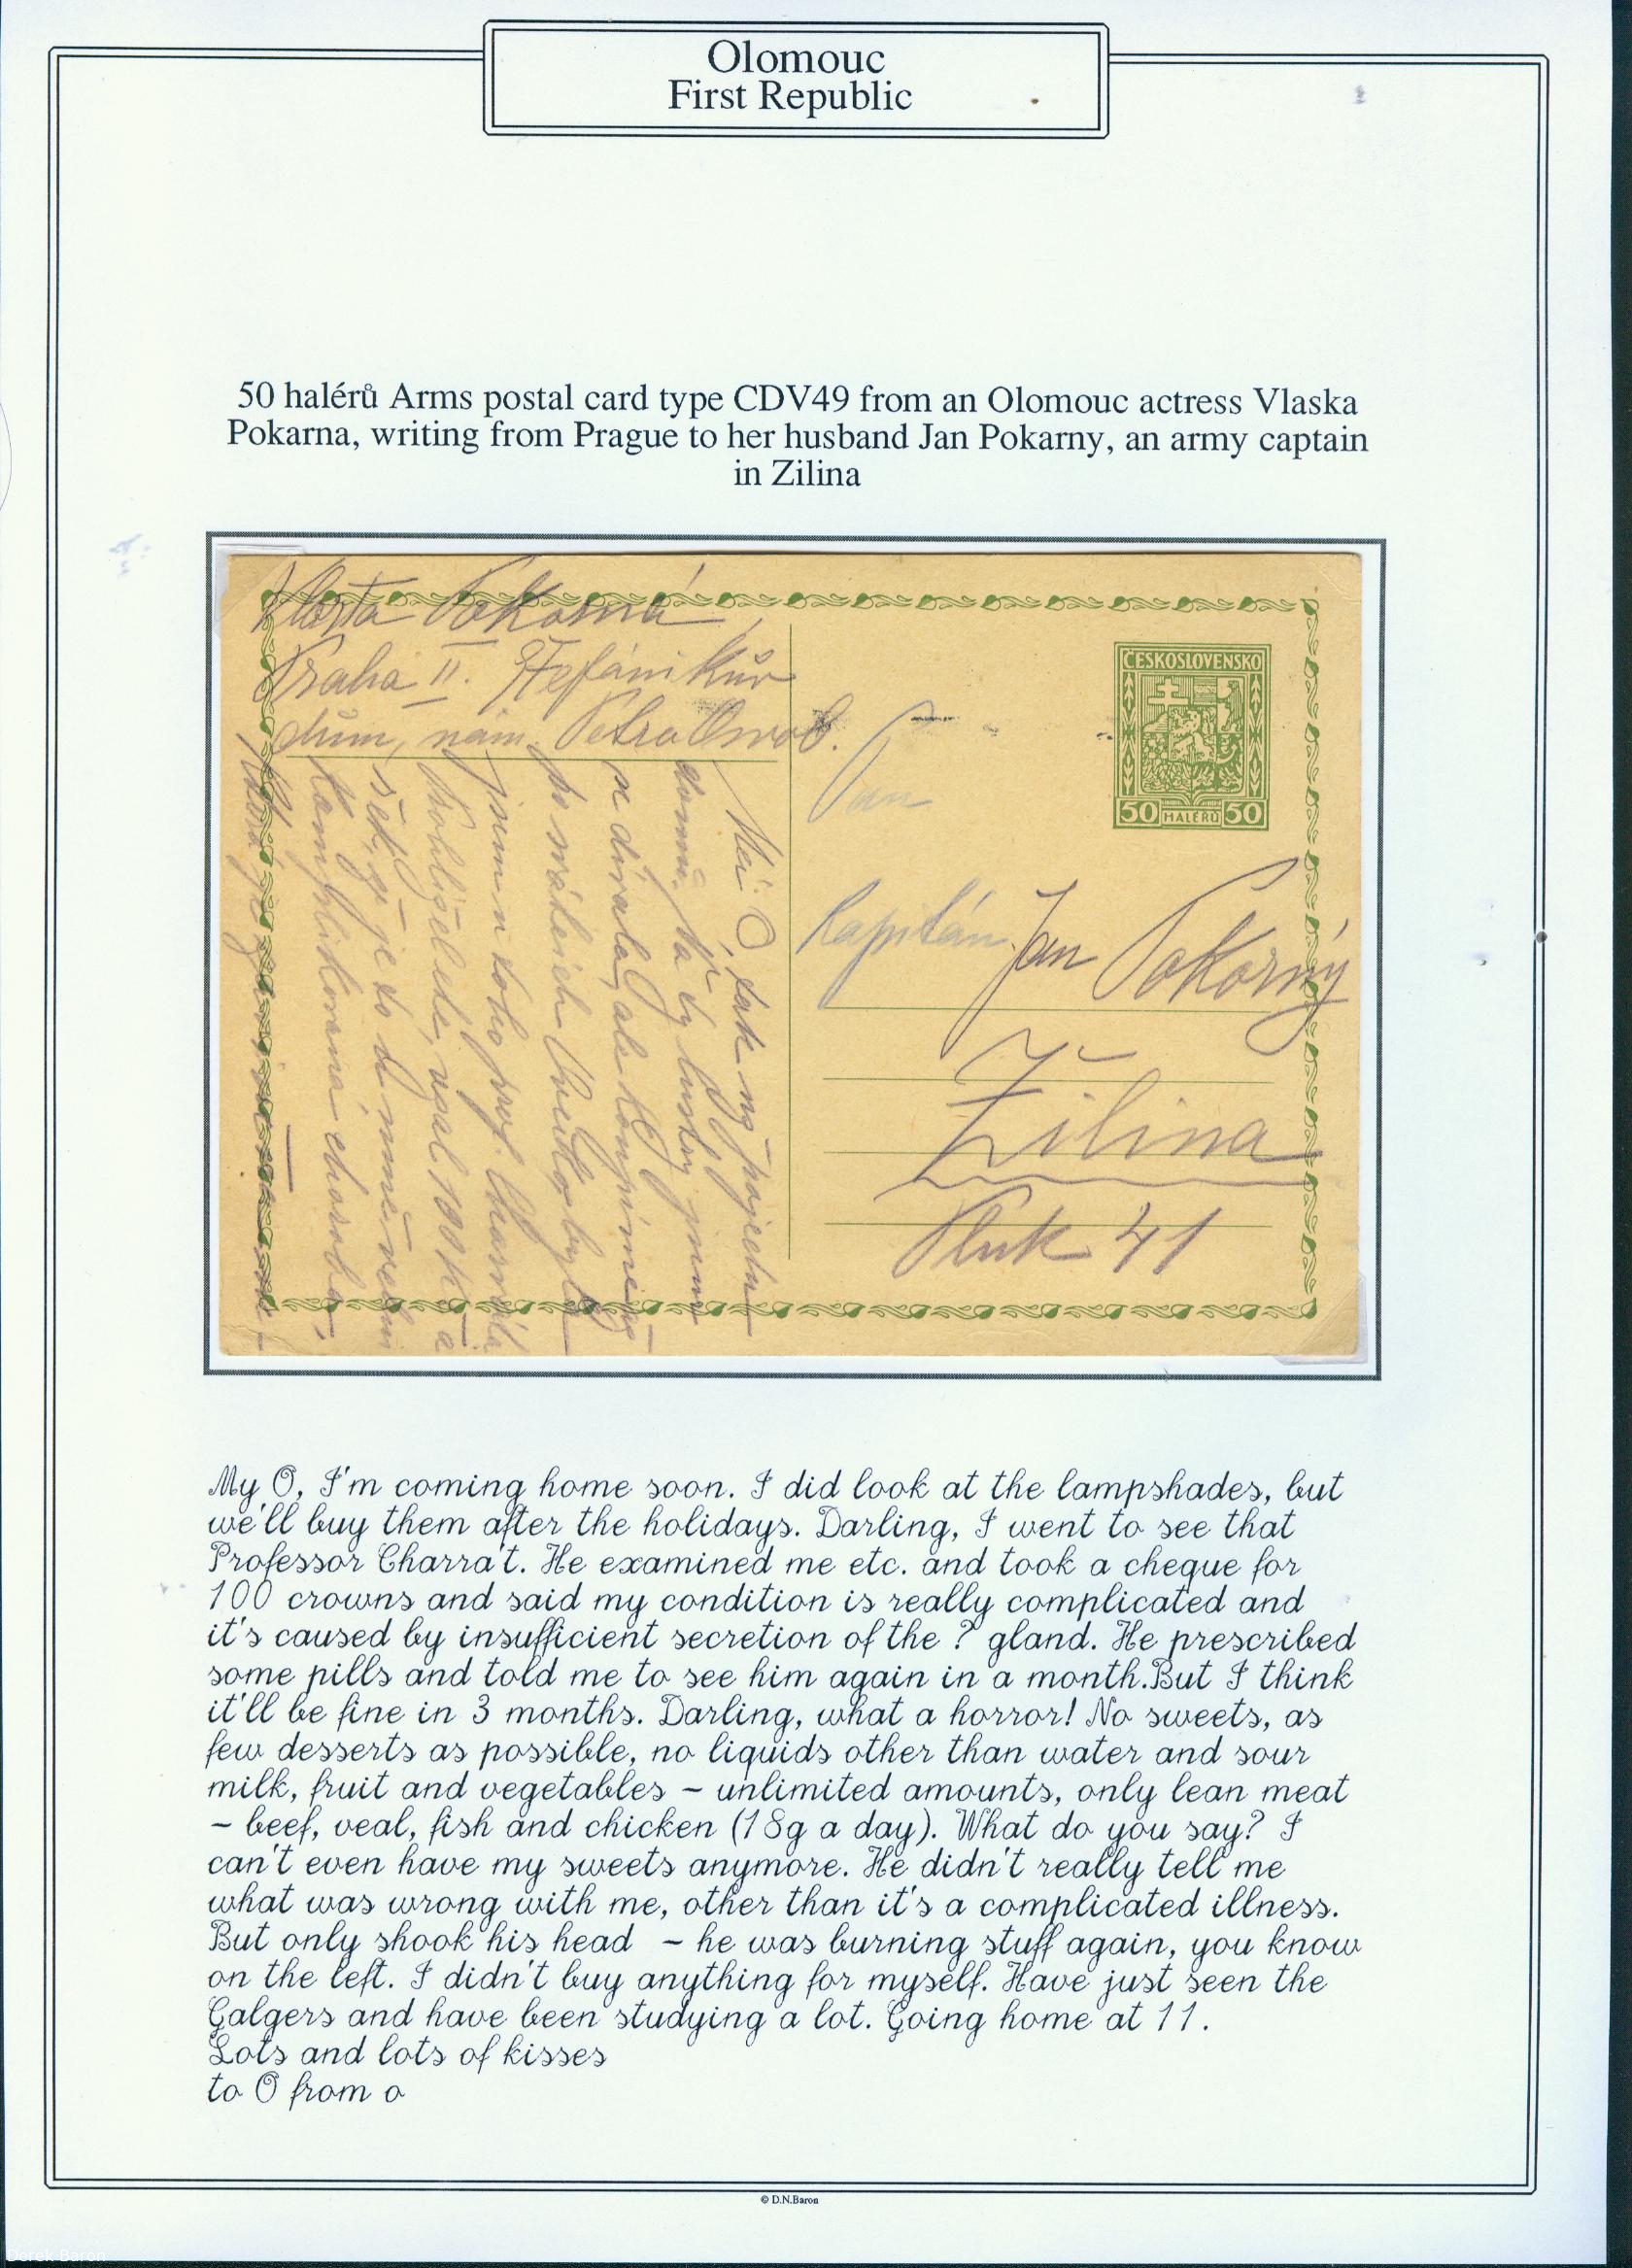 Olomouc
First Republic
50 halérů Arms postal card type CDV49 from an Olomouc actress Vlaska
Pokarna, writing from Prague to her husband Jan Pokarny, an army captain
in Zilina
Vlasta Pokorná
Praha II. Štefánikův
dům, nám. Petra Osvob.
ČESKOSLOVENSKO
50 HALÉŘŮ 50
Pan
Kapitán Jan Pokorný
Žilina
Pluk 41
Můj O, tak už pojedu
domů. Na ty lustry jsem
se dívala, ale koupíme
po svátcích
jsem u toho prof.
vzal 100 Kč a
že je to d
komplikovaná choroba
My O, I'm coming home soon. I did look at the lampshades, but
we'll buy them after the holidays. Darling, I went to see that
Professor Charra't. He examined me etc. and took a cheque for
100 crowns and said my condition is really complicated and
it's caused by insufficient secretion of the ? gland. He prescribed
some pills and told me to see him again in a month.But I think
it'll be fine in 3 months. Darling, what a horror! No sweets, as
few desserts as possible, no liquids other than water and sour
milk, fruit and vegetables - unlimited amounts, only lean meat
- beef, veal, fish and chicken (18g a day). What do you say? I
can't even have my sweets anymore. He didn't really tell me
what was wrong with me, other than it's a complicated illness.
But only shook his head - he was burning stuff again, you know
on the left. I didn't buy anything for myself. Have just seen the
Galgers and have been studying a lot. Going home at 11.
Lots and lots of kisses
to O from o
© D.N.Baron
Derek Baron